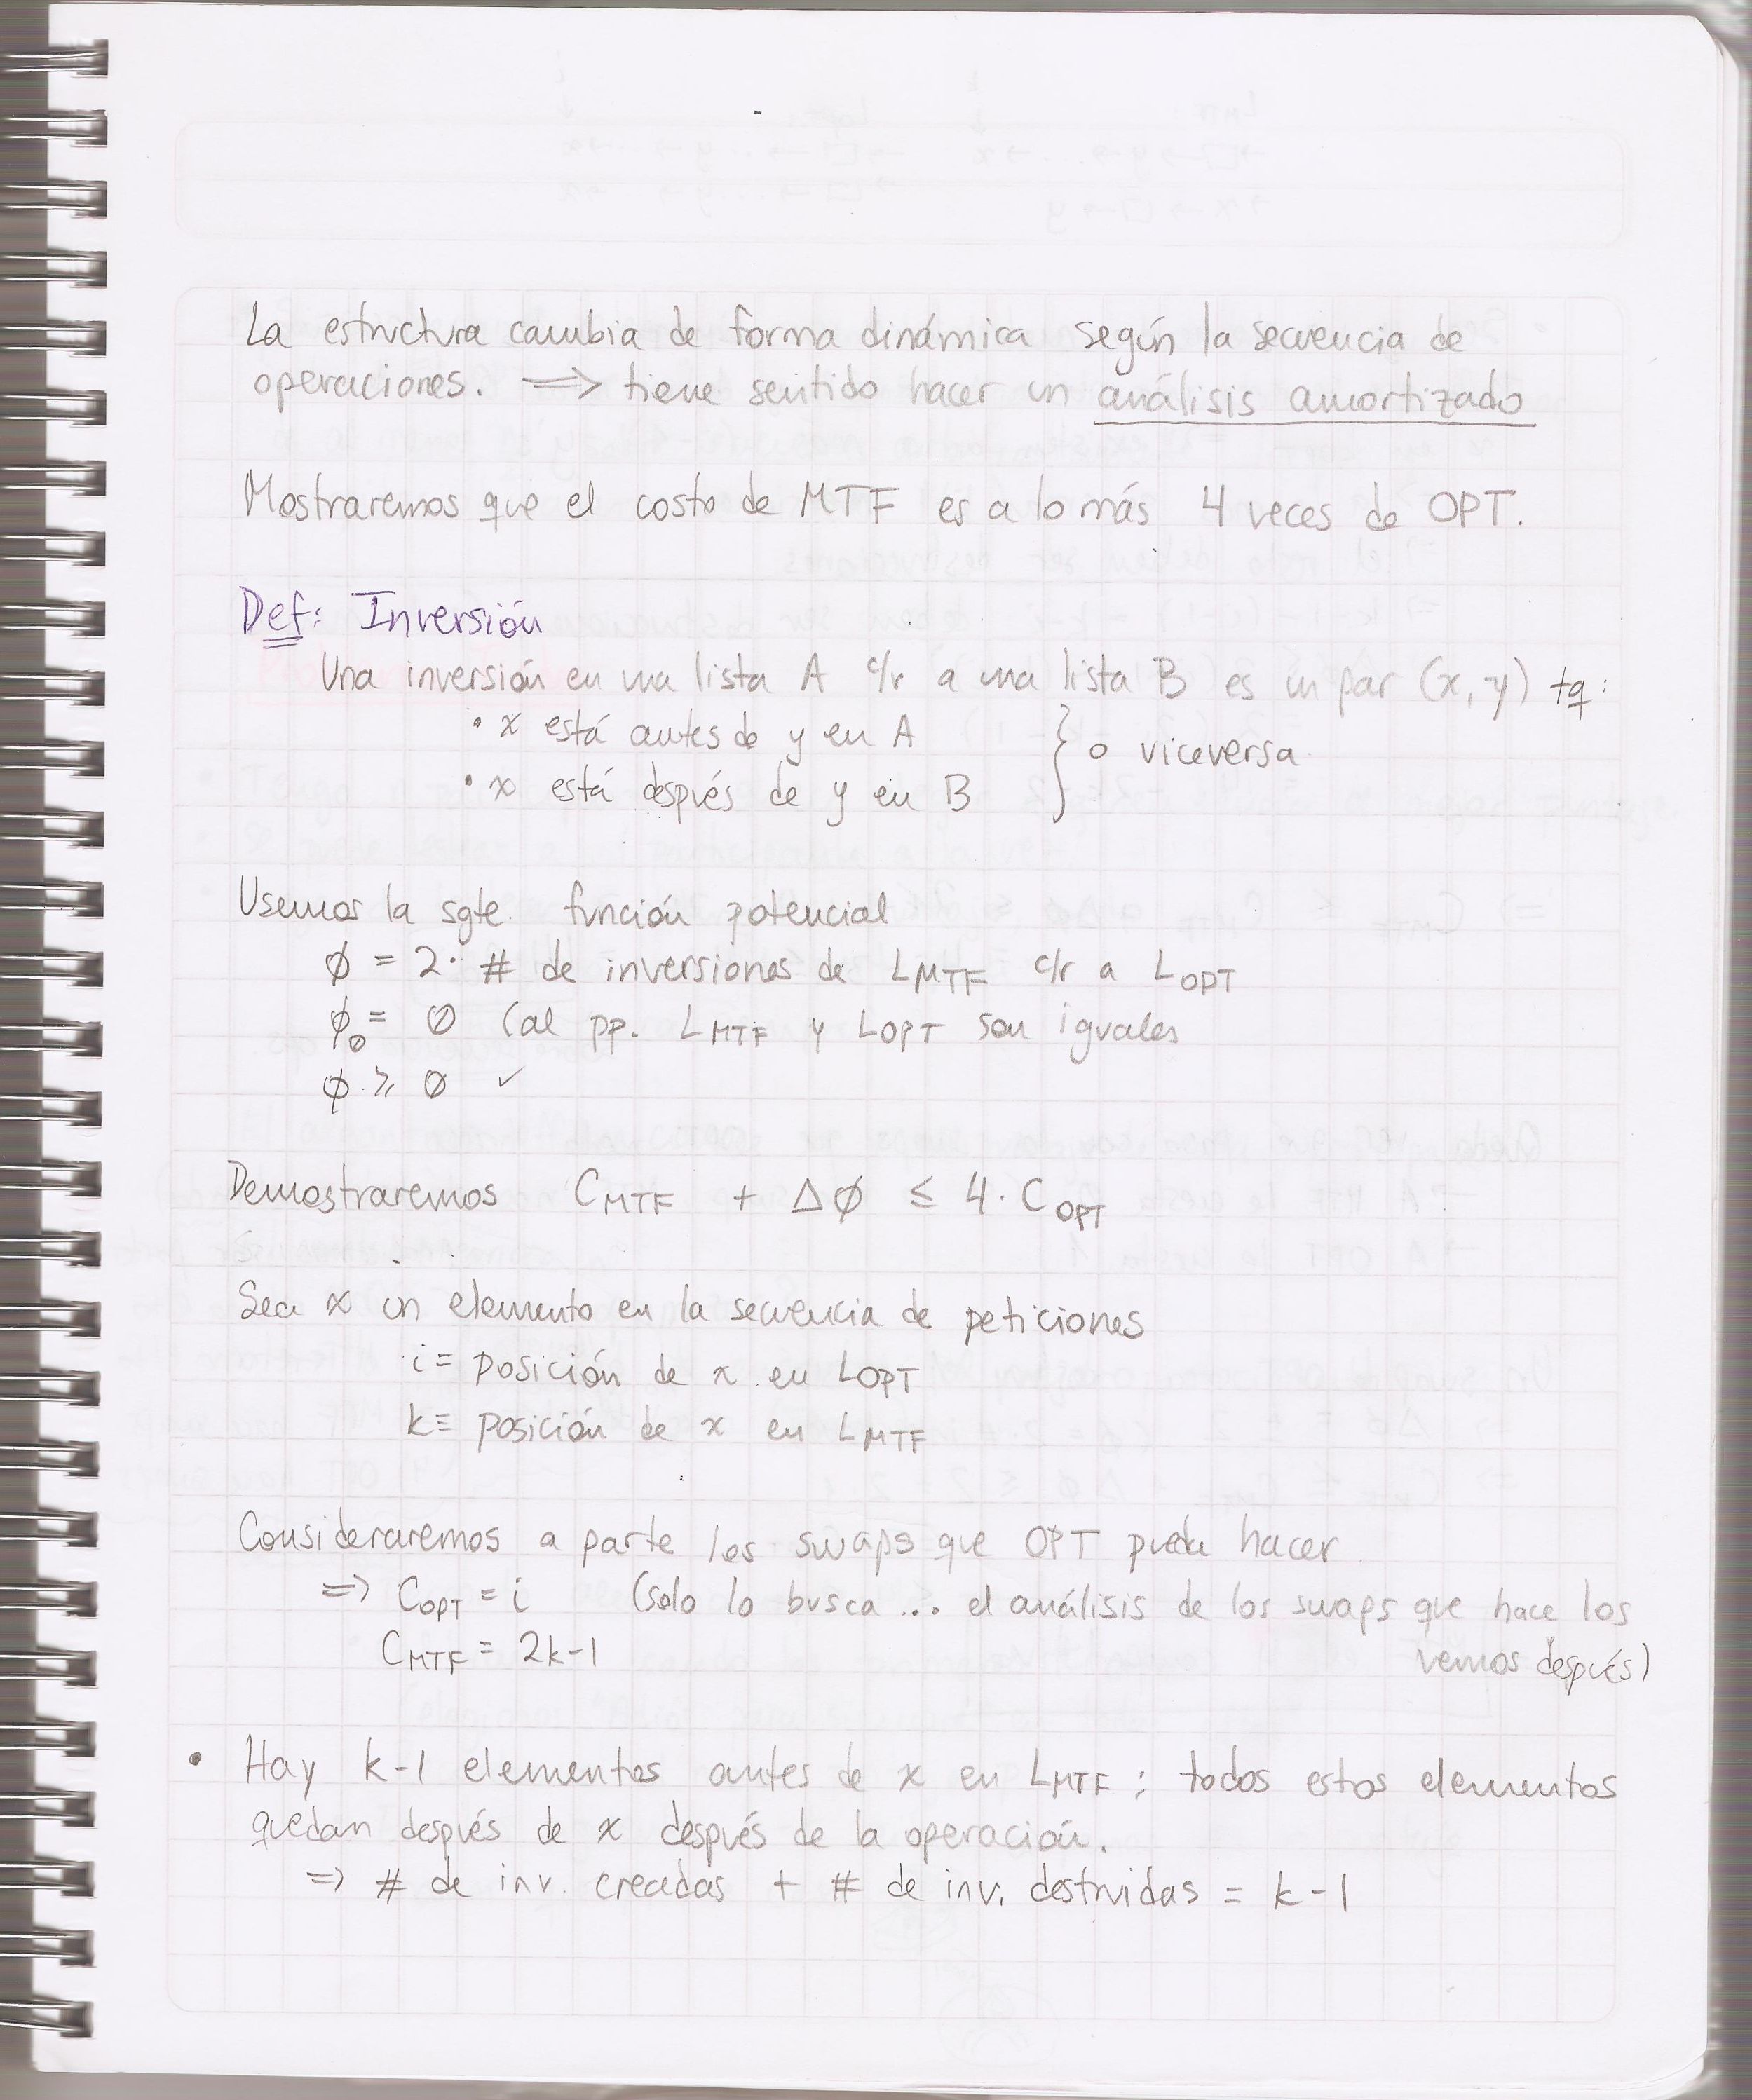 La estructura cambia de forma dinámica según la secuencia de
operaciones. => tiene sentido hacer un análisis amortizado
Mostraremos que el costo de MTF es a lo más 4 veces de OPT.
Def: Inversión
Una inversión en una lista A c/r a una lista B es un par (x, y) tq:
• x está antes de y en A
• x está después de y en B } o viceversa
Usemos la sgte. función potencial
ϕ = 2· # de inversiones de L_MTF c/r a L_OPT
ϕ_0 = 0 (al pp. L_MTF y L_OPT son iguales
ϕ ≥ 0 ✓
Demostraremos C_MTF + Δϕ ≤ 4· C_OPT
Sea x un elemento en la secuencia de peticiones
i = posición de x en L_OPT
k = posición de x en L_MTF
Consideraremos a parte los swaps que OPT pueda hacer
=> C_OPT = i (solo lo busca... el análisis de los swaps que hace los
vemos después)
C_MTF = 2k-1
• Hay k-1 elementos antes de x en L_MTF ; todos estos elementos
quedan después de x después de la operación.
=> # de inv. creadas + # de inv. destruidas = k-1